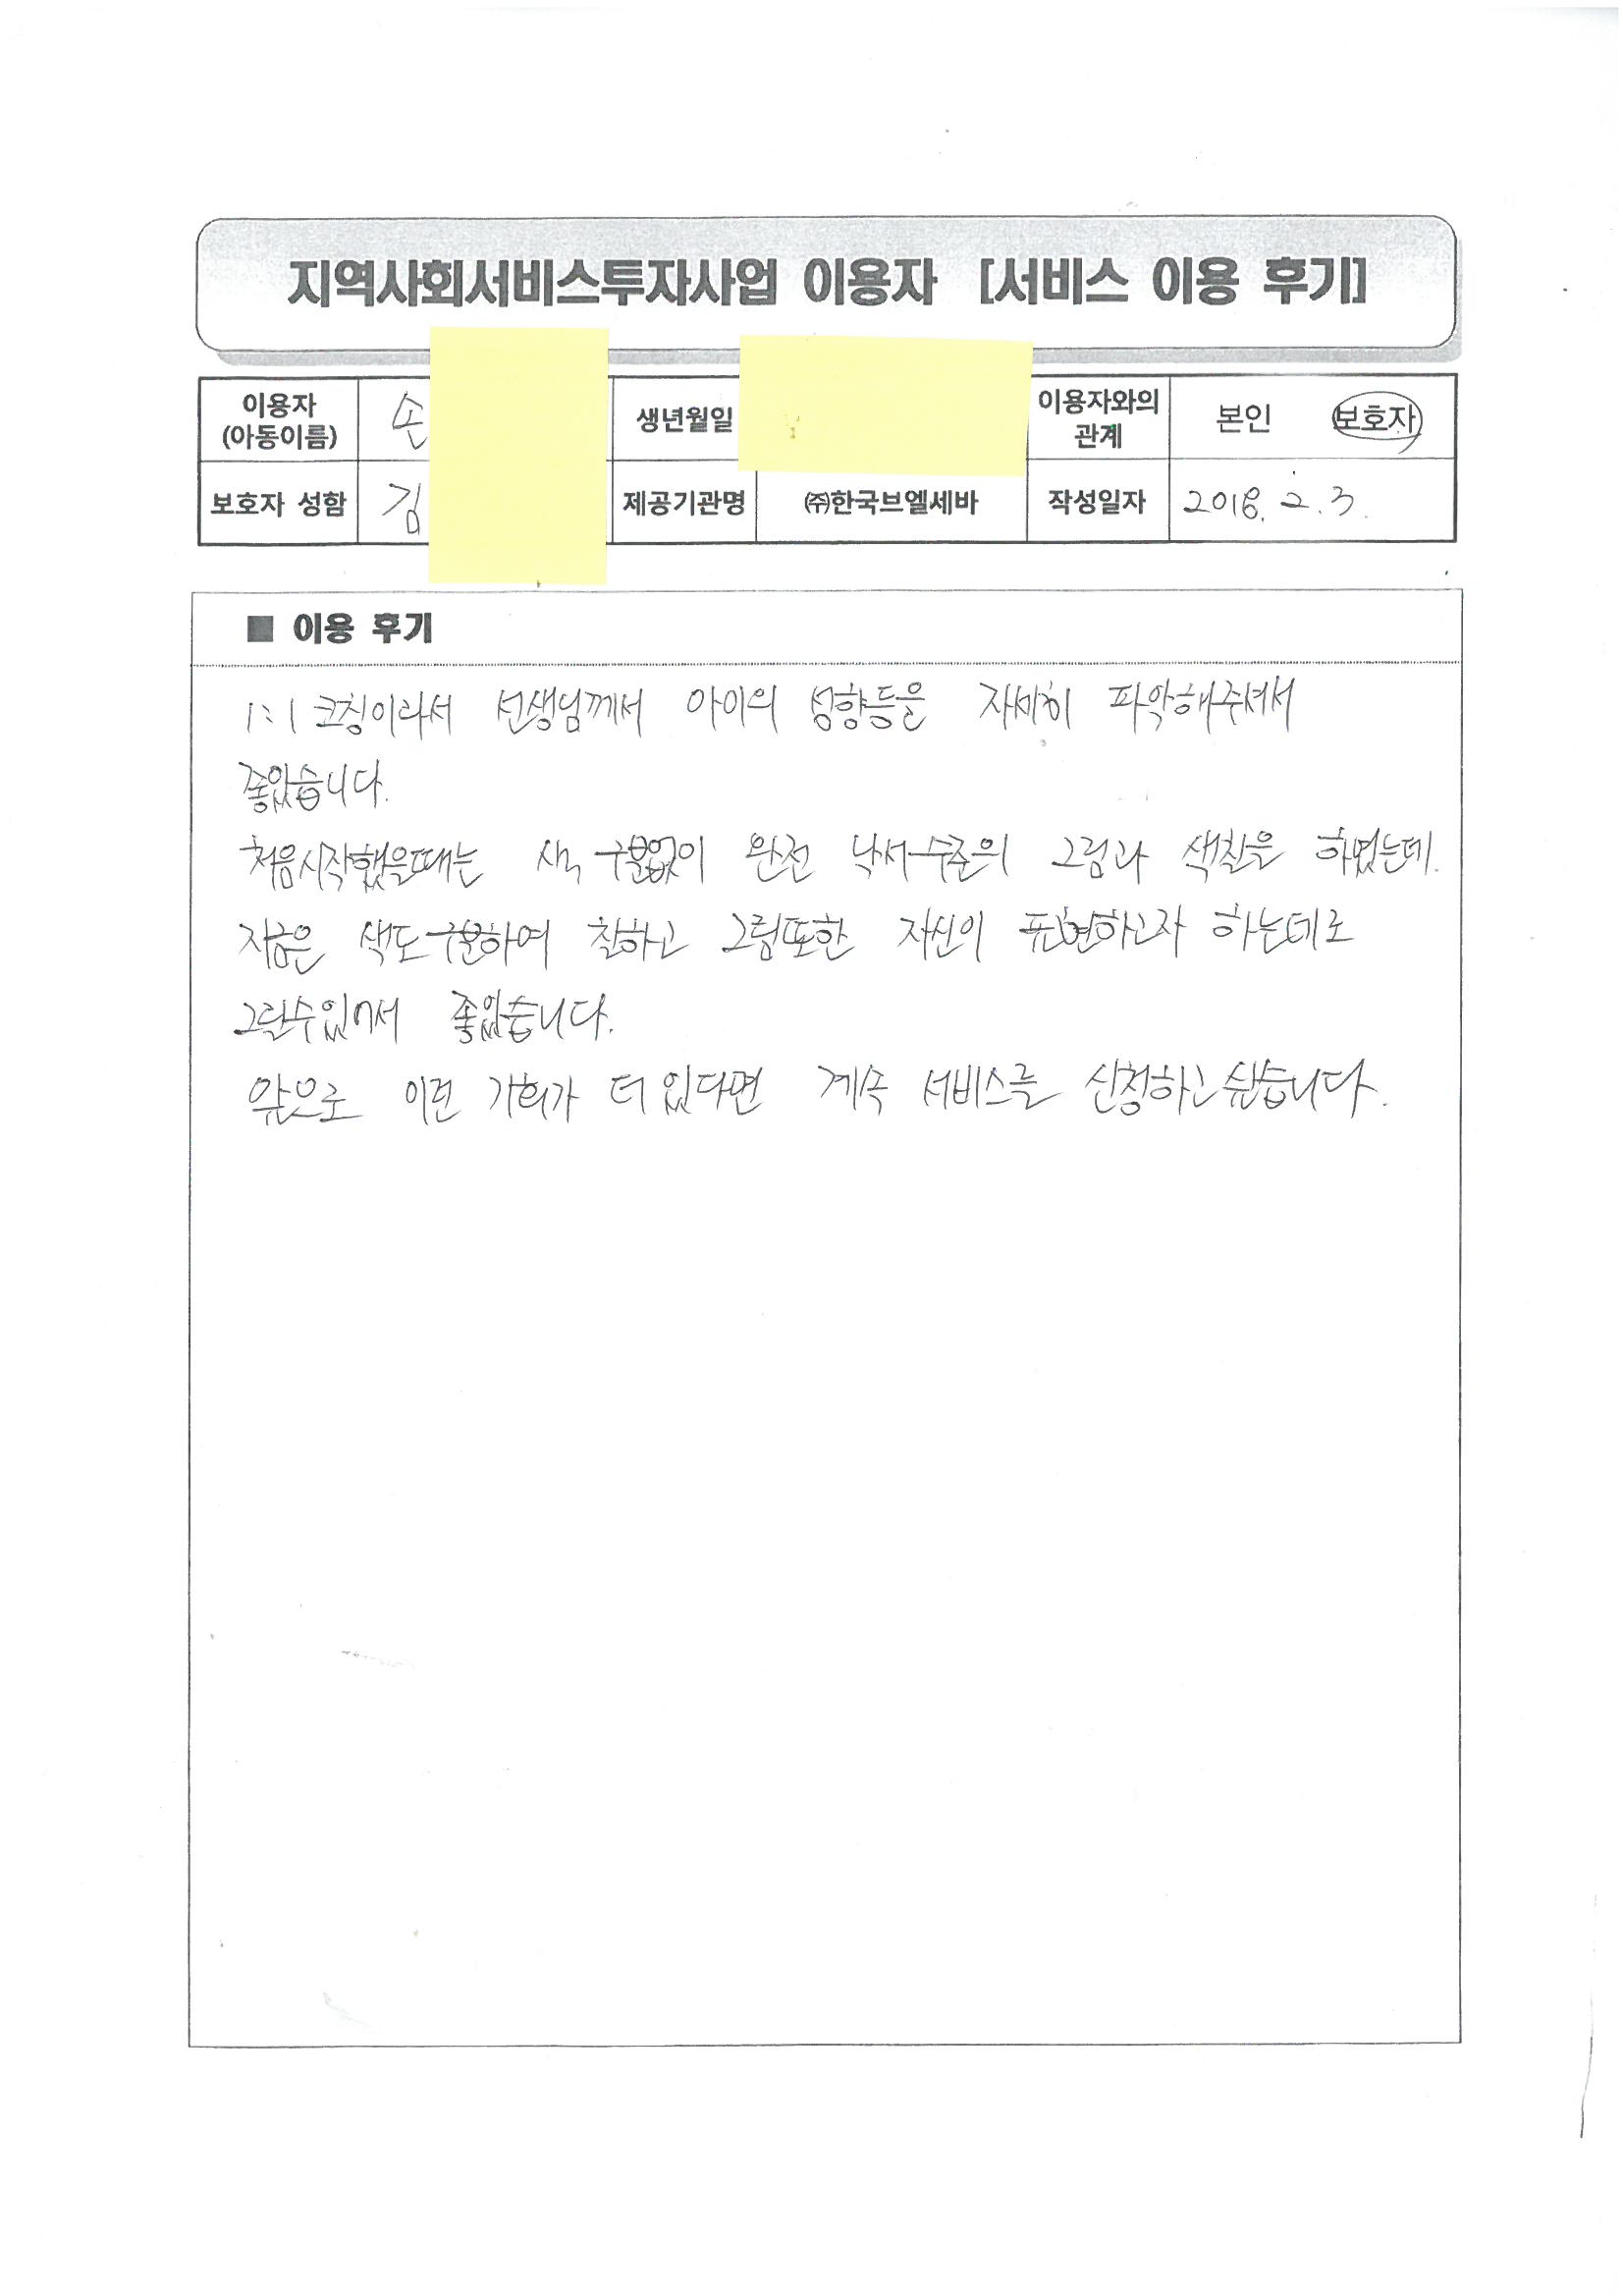 지역사회서비스투자사업 이용자 [서비스 이용 후기]
이용자
(아동이름) 손 생년월일 이용자와의
관계 본인 보호자
보호자 성함 김 제공기관명 ㈜한국브엘세바 작성일자 2018. 2. 3.
■ 이용 후기
1:1 코칭이라서 선생님께서 아이의 성향등을 자세히 파악해주셔서
좋았습니다.
처음시작했을때는 색 구분없이 완전 낙서수준의 그림과 색칠을 하였는데.
지금은 색도구분하여 칠하고 그림또한 자신이 표현하고자 하는데로
그릴수있어서 좋았습니다.
앞으로 이런 기회가 더 있다면 계속 서비스를 신청하고 싶습니다.